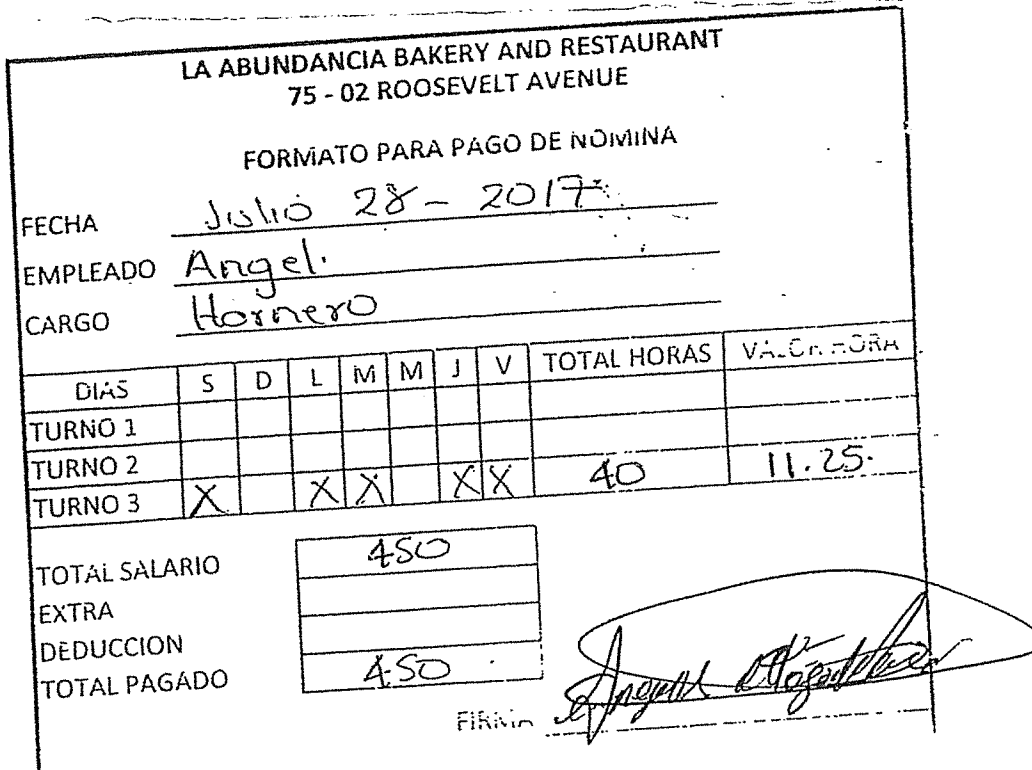 LA ABUNDANCIA BAKERY AND RESTAURANT
75 - 02 ROOSEVELT AVENUE
FORMATO PARA PAGO DE NOMINA
FECHA Julio 28 - 2017
EMPLEADO Angel.
CARGO Hornero
DIAS S D L M M J V TOTAL HORAS VALOR HORA
TURNO 1
TURNO 2
TURNO 3 X X X X X 40 11.25.
TOTAL SALARIO 450
EXTRA
DEDUCCION
TOTAL PAGADO 450
FIRMA